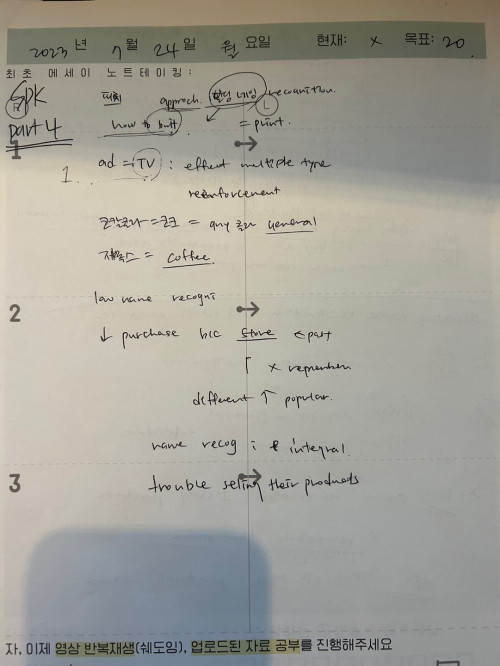 2023 년 7 월 24 일 월 요일 현재: x 목표: 20.
최초 에세이 노트테이킹:
SPK approch. recognition.
part 4 how to built = print.
1
1. ad = TV : effect multiple type
reenforcement
= 코크 = any 콜라 general
= coffee.
low name recogni
2
↓ purchase b/c store
x remember
different ↑ popular.
name recog integral.
3
trouble selling their products
자, 이제 영상 반복재생(쉐도잉), 업로드된 자료 공부를 진행해주세요